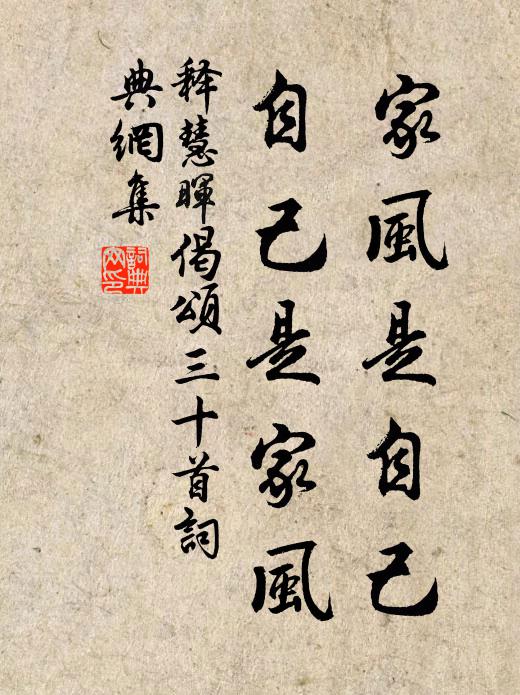 家風是自己
自己是家風
释慧暉偈頌三十首詞
典網集
詞典
网印